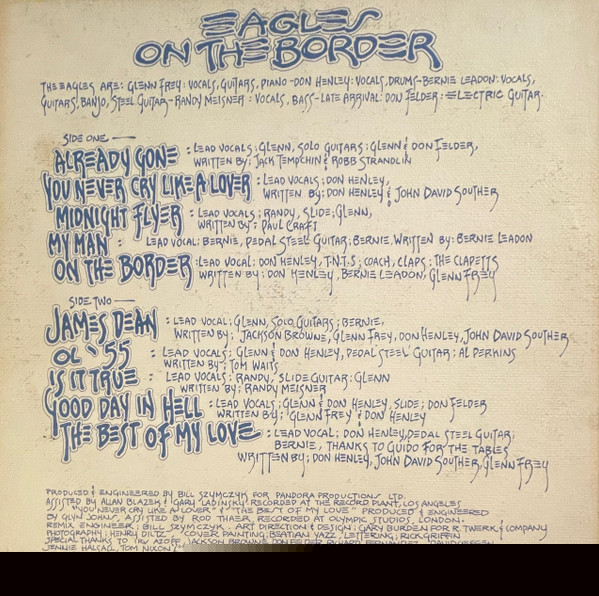 EAGLES
ON THE BORDER
THE EAGLES ARE: GLENN FREY: VOCALS, GUITARS, PIANO-DON HENLEY: VOCALS, DRUMS-BERNIE LEADON: VOCALS,
GUITARS, BANJO, STEEL GUITAR-RANDY MEISNER: VOCALS, BASS-LATE ARRIVAL: DON FELDER: ELECTRIC GUITAR.
SIDE ONE —
ALREADY GONE : LEAD VOCALS; GLENN, SOLO GUITARS; GLENN & DON FELDER,
WRITTEN BY; JACK TEMPCHIN & ROBB STRANDLIN
YOU NEVER CRY LIKE A LOVER : LEAD VOCALS; DON HENLEY,
WRITTEN BY; DON HENLEY & JOHN DAVID SOUTHER
MIDNIGHT FLYER : LEAD VOCALS; RANDY, SLIDE; GLENN,
WRITTEN BY; PAUL CRAFT
MY MAN : LEAD VOCAL: BERNIE, PEDAL STEEL GUITAR; BERNIE, WRITTEN BY: BERNIE LEADON
ON THE BORDER : LEAD VOCAL: DON HENLEY, T.N.T.S; COACH, CLAPS: THE CLAPETTS
WRITTEN BY; DON HENLEY, BERNIE LEADON, GLENN FREY
SIDE TWO —
JAMES DEAN : LEAD VOCAL; GLENN, SOLO GUITARS; BERNIE,
WRITTEN BY; JACKSON BROWNE, GLENN FREY, DON HENLEY, JOHN DAVID SOUTHER
OL '55 : LEAD VOCALS; GLENN & DON HENLEY, PEDAL STEEL GUITAR: AL PERKINS
WRITTEN BY; TOM WAITS
IS IT TRUE : LEAD VOCALS; RANDY, SLIDE GUITAR: GLENN
WRITTEN BY; RANDY MEISNER
GOOD DAY IN HELL : LEAD VOCALS; GLENN & DON HENLEY, SLIDE; DON FELDER
WRITTEN BY; GLENN FREY & DON HENLEY
THE BEST OF MY LOVE : LEAD VOCAL; DON HENLEY, PEDAL STEEL GUITAR;
BERNIE, THANKS TO GUIDO FOR THE TABLES
WRITTEN BY; DON HENLEY, JOHN DAVID SOUTHER, GLENN FREY
PRODUCED & ENGINEERED BY BILL SZYMCZYK FOR PANDORA PRODUCTIONS LTD.
ASSISTED BY ALLAN BLAZEK & GARY LADINSKY. RECORDED AT THE RECORD PLANT, LOS ANGELES
"YOU NEVER CRY LIKE A LOVER" & "THE BEST OF MY LOVE" PRODUCED & ENGINEERED
BY GLYN JOHNS, ASSISTED BY ROD THAER, RECORDED AT OLYMPIC STUDIOS, LONDON.
REMIX ENGINEER: BILL SZYMCZYK, ART DIRECTION & DESIGN: GARY BURDEN FOR R. TWERK & COMPANY
PHOTOGRAPHY: HENRY DILTZ, COVER PAINTING; BEATIAN YAZZ, LETTERING; RICK GRIFFIN
SPECIAL THANKS TO IRV AZOFF, JACKSON BROWNE, DON FELDER, RICHARD FERNANDEZ, DAVID GEFFEN,
JENNIE HALSALL, TOM NIXON